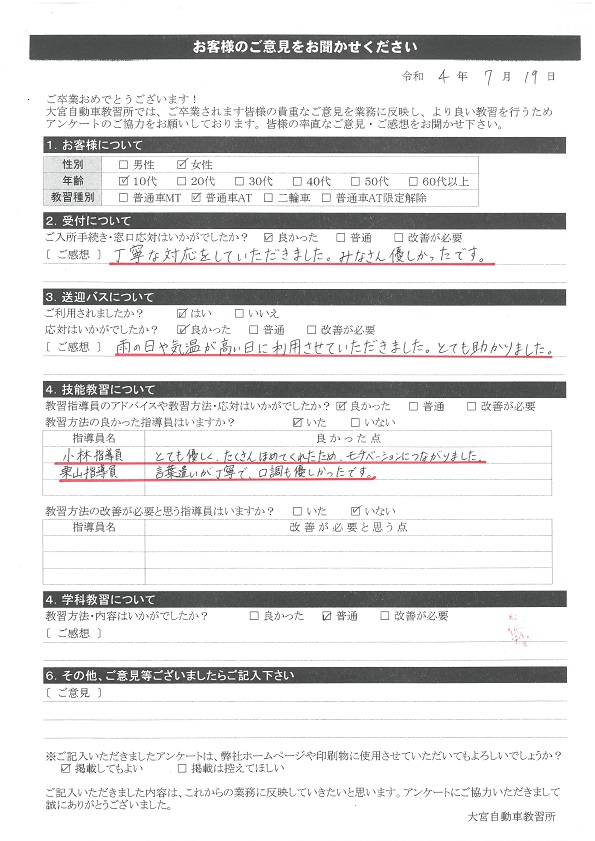 お客様のご意見をお聞かせください
令和 4 年 7 月 19 日
ご卒業おめでとうございます！
大宮自動車教習所では、ご卒業されます皆様の貴重なご意見を業務に反映し、より良い教習を行うため
アンケートのご協力をお願いしております。皆様の率直なご意見・ご感想をお聞かせ下さい。
1. お客様について
性別 □ 男性 ☑ 女性
年齢 ☑ 10代 □ 20代 □ 30代 □ 40代 □ 50代 □ 60代以上
教習種別 □ 普通車MT ☑ 普通車AT □ 二輪車 □ 普通車AT限定解除
2. 受付について
ご入所手続き・窓口応対はいかがでしたか？ ☑ 良かった □ 普通 □ 改善が必要
［ ご感想 ］ 丁寧な対応をしていただきました。みなさん優しかったです。
3. 送迎バスについて
ご利用されましたか？ ☑ はい □ いいえ
応対はいかがでしたか？ ☑ 良かった □ 普通 □ 改善が必要
［ ご感想 ］ 雨の日や気温が高い日に利用させていただきました。とても助かりました。
4. 技能教習について
教習指導員のアドバイスや教習方法・応対はいかがでしたか？ ☑ 良かった □ 普通 □ 改善が必要
教習方法の良かった指導員はいますか？ ☑ いた □ いない
指導員名 良かった点
小林指導員 とても優しく、たくさんほめてくれたため、モチベーションにつながりました。
栗山指導員 言葉遣いが丁寧で、口調も優しかったです。
教習方法の改善が必要と思う指導員はいますか？ □ いた ☑ いない
指導員名 改善が必要と思う点
4. 学科教習について
教習方法・内容はいかがでしたか？ □ 良かった ☑ 普通 □ 改善が必要
［ ご感想 ］
6. その他、ご意見等ございましたらご記入下さい
［ ご意見 ］
※ご記入いただきましたアンケートは、弊社ホームページや印刷物に使用させていただいてもよろしいでしょうか？
☑ 掲載してもよい □ 掲載は控えてほしい
ご記入いただきました内容は、これからの業務に反映していきたいと思います。アンケートにご協力いただきまして
誠にありがとうございました。
大宮自動車教習所